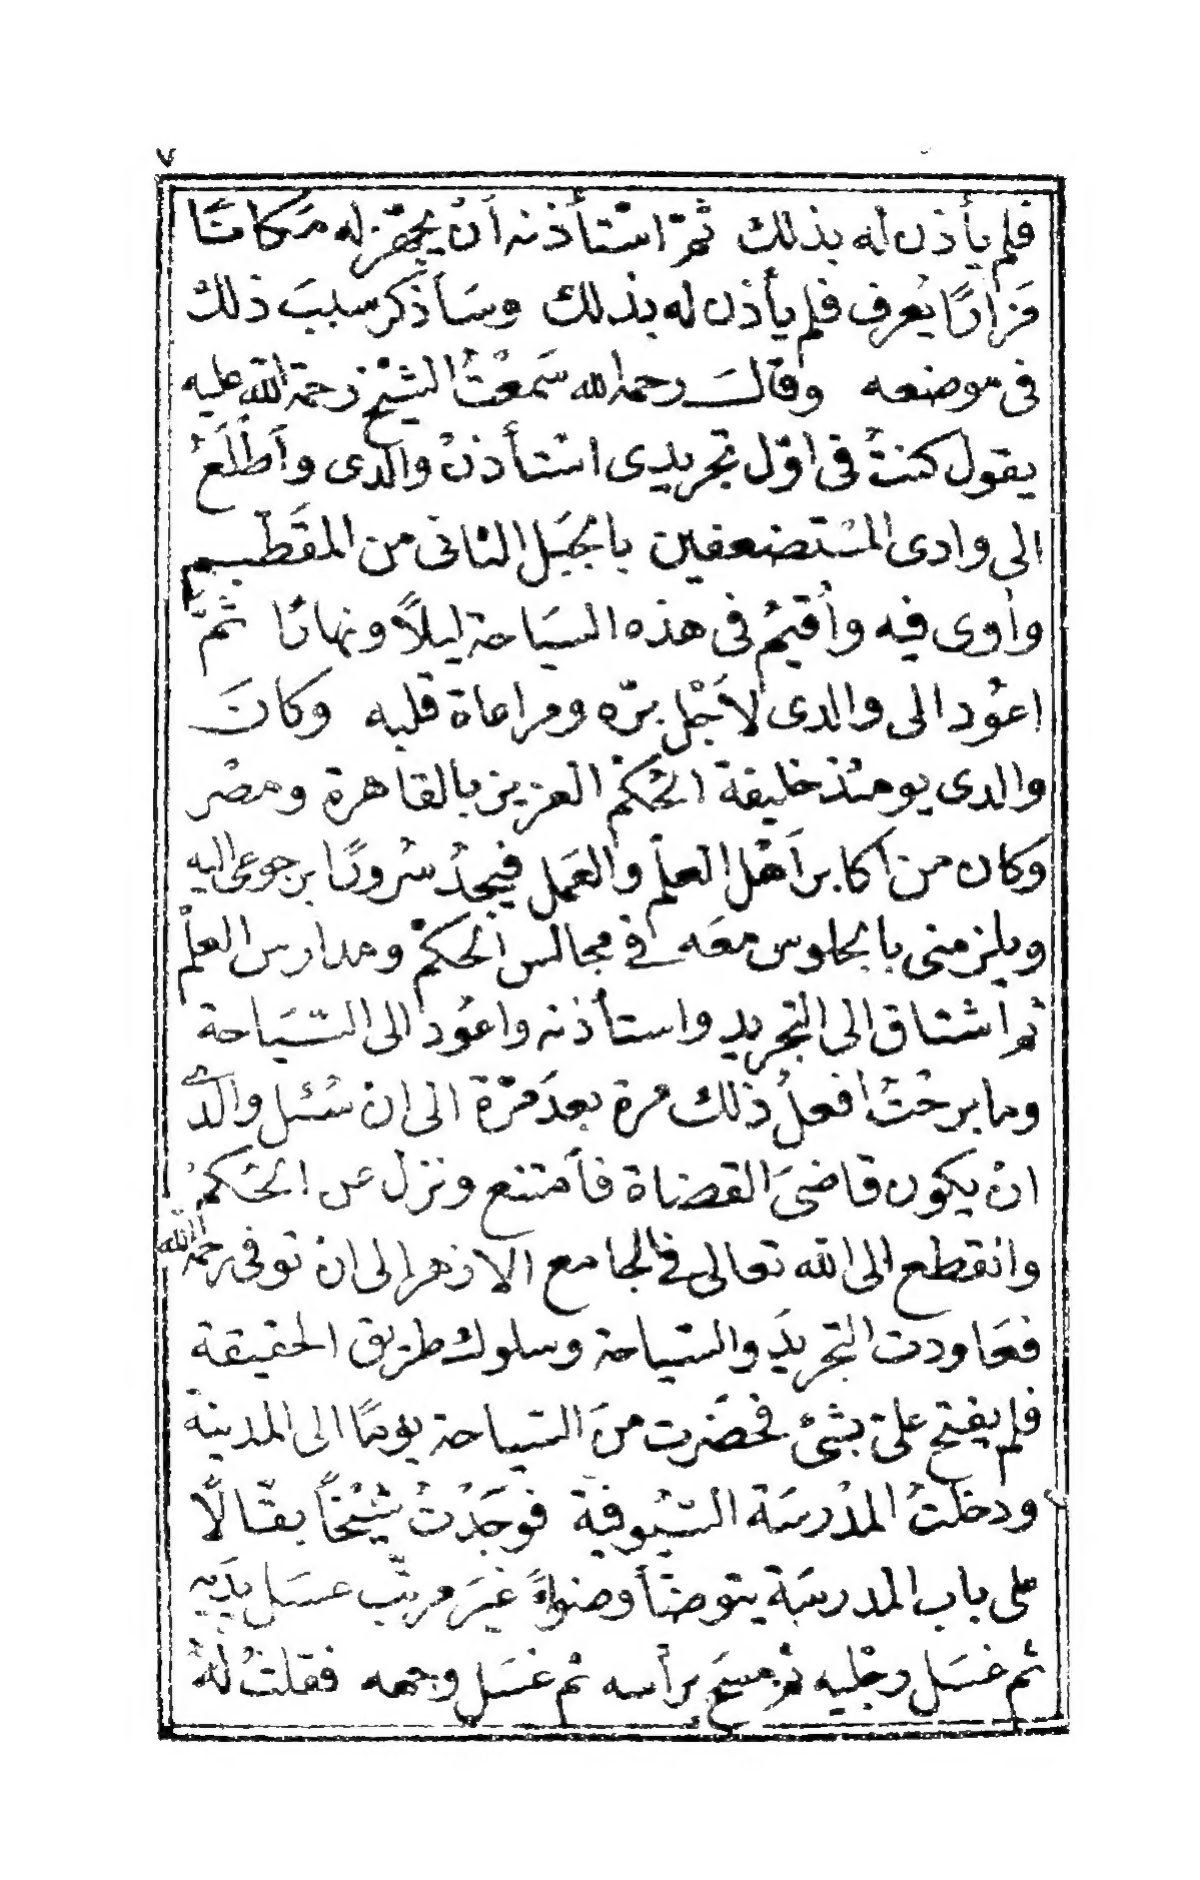 ٧
فلم يأذن له بذلك ثمّ استأذنه أن يجهّز له مَكانًا
مَزارًا يُعرف فلم يأذن له بذلك وسَأذكر سببَ ذلك
فى موضعه وقالَ رحمه الله سَمعْتُ الشيْخ رحمة الله عليه
يقول كنتُ فى اوّل تجريدى استأذنُ والدى وأَطْلَعُ
الى وادى المسْتضعفين بالجبَل الثانى من المقَطّم
وأوى فيه وأُقيمُ فى هذه السيَاحة ليلاً ونهارًا ثمَّ
اعوُد الى والدى لأجْل برّه ومراعاة قلبه وكانَ
والدى يومئذ خليفة الحُكمْ العزيز بالقاهرة ومصْر
وكان من أكابر أهْل العلْم والعَمل فيجدُ سُرورًا برجوعى اليه
ويلزمنى بالجلوس معَه فى مجالس الحكمْ ومدارس العلْم
ثم اشتاق الى التجريد واستأذنه واعوُد الى السّيَاحة
وما برحْتُ افعلُ ذلك مرة بعدَ مَرّة الى ان سُئل والدى
انْ يكون قاضىَ القضاة فأمتنع ونزل عن الحُكمْ
وانقطع الى الله تعالى فى الجامع الازهر الى ان توفى رحمه الله
فعَاودت التجريدَ والسّياحة وسلوك طريق الحقيقة
فلم يفتح علىّ بشئ فحضَرت منَ السّياحة يومًا الى المدينة
ودخلتُ المدْرسَة السّيُوفية فوجَدْتُ شيْخاً بقّالًا
على باب المدرسَة يتوضّأ وضوأً غيَر مرتّب غسَل يدَيه
ثم غسَل رجْليه ثم مسَح برأسه ثم غسَل وجهه فقلتُ لَهُ